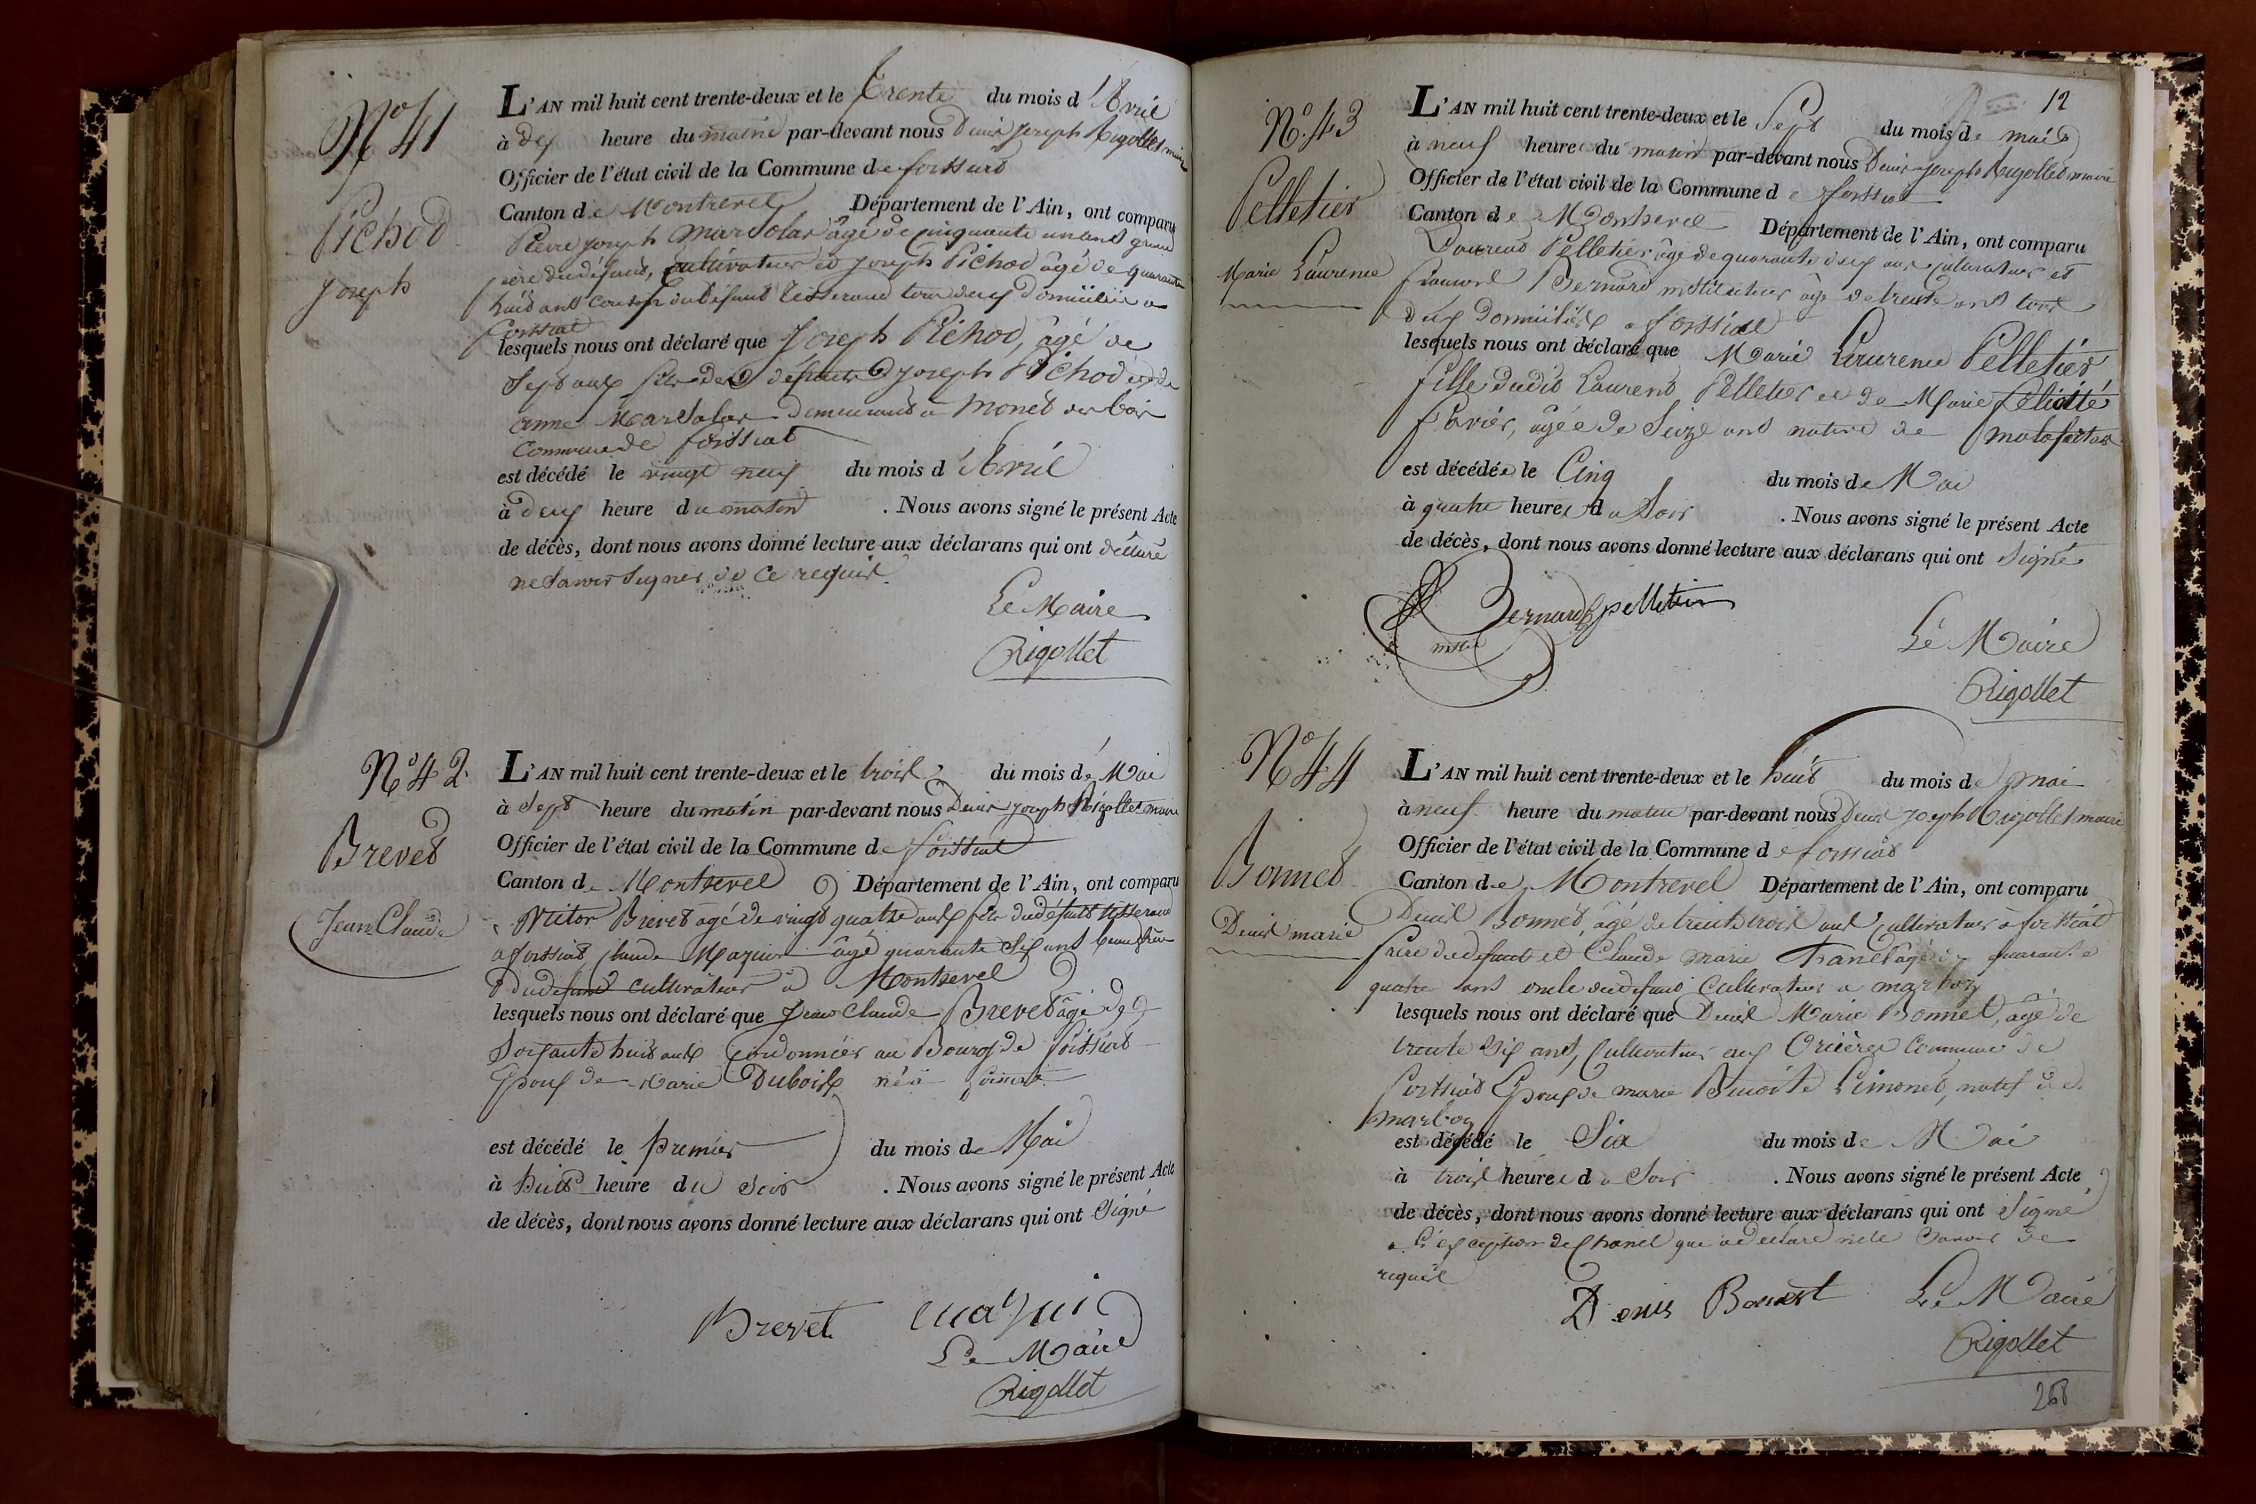 N° 41
Pichod
Joseph
L'AN mil huit cent trente-deux et le trente du mois d'Avril
à dix heure du matin par-devant nous Denis Joseph Rigollet maire
Officier de l'état civil de la Commune de foissiat
Canton de Montrevel Département de l'Ain, ont comparu
Pierre Joseph Marsolas âgé de cinquante un ans grand
père du défunt, cultivateur et Joseph Pichod âgé de quarante
huit ans cousin du défunt tisserand tous deux domiciliés à
foissiat
lesquels nous ont déclaré que Joseph Pichod, âgé de
sept ans fils de défunt Joseph Pichod et de
anne Marsolas demeurant à
commune de foissiat
est décédé le vingt neuf du mois d'Avril
à deux heure du matin . Nous avons signé le présent Acte
de décès, dont nous avons donné lecture aux déclarans qui ont déclaré
ne savoir signer de ce requis.
Le Maire
Rigollet
N° 42.
Brevet
Jean Claude
L'AN mil huit cent trente-deux et le trois du mois de Mai
à sept heure du matin par-devant nous Denis joseph Rigollet maire
Officier de l'état civil de la Commune de foissiat
Canton de Montrevel Département de l'Ain, ont comparu
Victor Brevet âgé de vingt quatre ans fils du défunt tisserand
à foissiat claude Maquin âgé quarante six ans beau frère
du défunt cultivateur à Montrevel
lesquels nous ont déclaré que Jean Claude Brevet âgé de
soixante huit ans cordonnier au Bourg de foissiat
Epoux de Marie Dubois né à
est décédé le premier du mois de Mai
à huit heure du soir . Nous avons signé le présent Acte
de décès, dont nous avons donné lecture aux déclarans qui ont signé
Brevet Maquin
Le Maire
Rigollet
12
N° 43
Pelletier
Marie Laurence
L'AN mil huit cent trente-deux et le Sept du mois de mai
à neuf heure du matin par-devant nous Denis Joseph Rigollet maire
Officier de l'état civil de la Commune de foissiat
Canton de Montrevel Département de l'Ain, ont comparu
Laurend Pelletier âgé de quarante deux ans cultivateur et
françois Bernard instituteur âgé de trente ans tous
deux domiciliés à foissiat
lesquels nous ont déclaré que Marie Laurence Pelletier
fille dudit Laurend Pelletier et de Marie félicité
âgée de Seize ans native de
est décédée le Cinq du mois de Mai
à quatre heures du Soir . Nous avons signé le présent Acte
de décès, dont nous avons donné lecture aux déclarans qui ont signé
Bernard pelletier
Le Maire
Rigollet
N° 44
Bonnet
Denis marie
L'AN mil huit cent trente-deux et le huit du mois de mai
à neuf heure du matin par-devant nous Denis Joseph Rigollet maire
Officier de l'état civil de la Commune de foissiat
Canton de Montrevel Département de l'Ain, ont comparu
Denis Bonnet, âgé de trente trois ans cultivateur à foissiat
frère du défunt et Claude marie Chanel âgé de quarante
quatre ans oncle du défunt Cultivateur à marboz
lesquels nous ont déclaré que Denis Marie Bonnet, âgé de
trente six ans, cultivateur aux commune de
foissiat Epoux de marie Benoite natif de
marboz
est décédé le Six du mois de Mai
à trois heures du Soir . Nous avons signé le présent Acte
de décès, dont nous avons donné lecture aux déclarans qui ont signé,
à l'exception de Chanel qui a déclaré ne le savoir de
requis
Denis Bonnet Le Maire
Rigollet
268